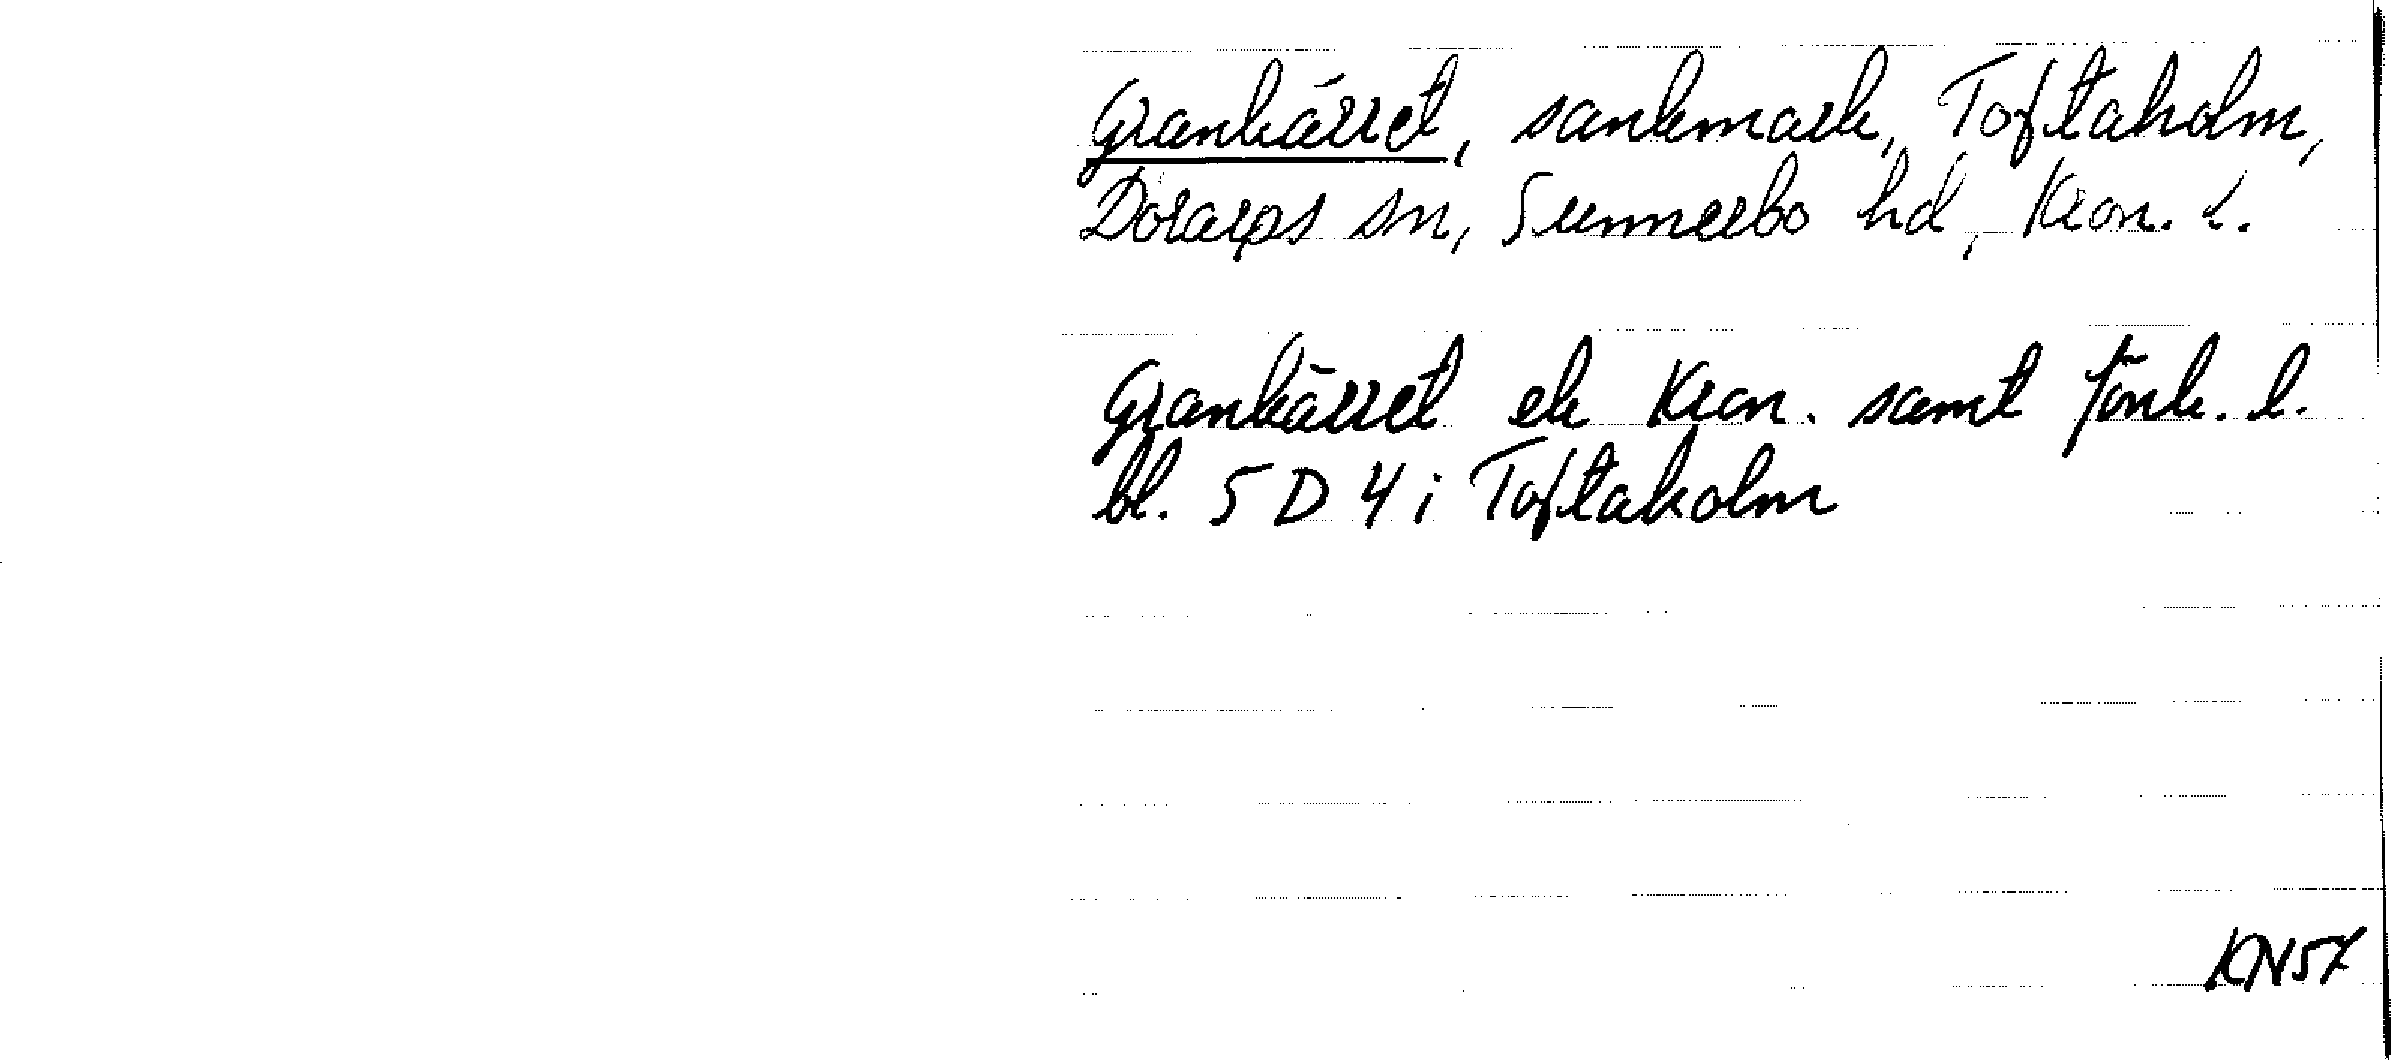 Grankärret, sankmark, Toftaholm,
Dörarps sn, Sunnerbo hd, Kron. l.
Grankärret ek Kron. samt Jönk. l.
bl. 5 D 4 i Toftaholm
KN57